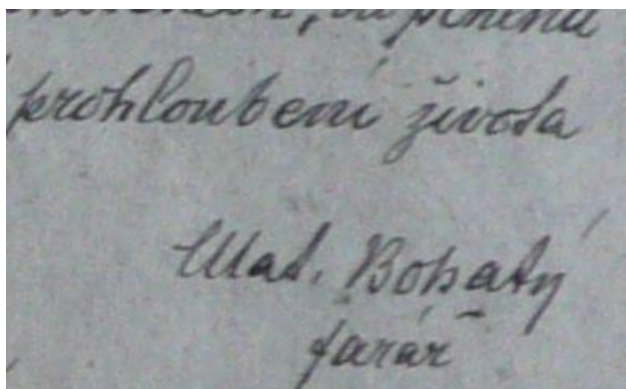 prohloubení života
Mat. Bohatý
farář